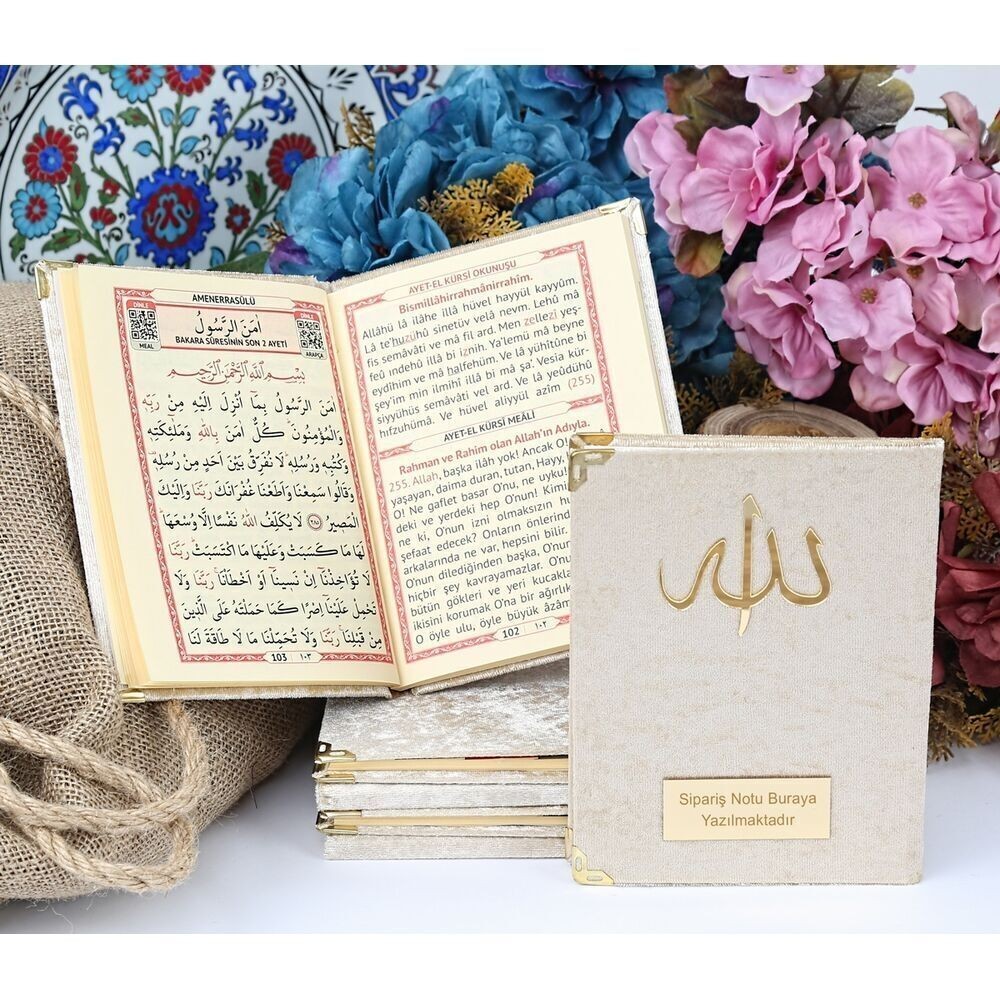 AMENERRASÛLÜ
DİNLE
MEAL
اٰمَنَ الرَّسُولُ
DİNLE
ARAPÇA
BAKARA SÛRESİNİN SON 2 AYETİ
بِسْمِ اللّٰهِ الرَّحْمٰنِ الرَّحِيمِ
اٰمَنَ الرَّسُولُ بِمَٓا اُنْزِلَ اِلَيْهِ مِنْ رَبِّهٖ
وَالْمُؤْمِنُونَۜ كُلٌّ اٰمَنَ بِاللّٰهِ وَمَلٰٓئِكَتِهٖ
وَكُتُبِهٖ وَرُسُلِهٖۜ لَا نُفَرِّقُ بَيْنَ اَحَدٍ مِنْ رُسُلِهٖ۠
وَقَالُوا سَمِعْنَا وَاَطَعْنَا غُفْرَانَكَ رَبَّنَا وَاِلَيْكَ
الْمَصِيرُ ﴿٢٨٥﴾ لَا يُكَلِّفُ اللّٰهُ نَفْسًا اِلَّا وُسْعَهَاۜ
لَهَا مَا كَسَبَتْ وَعَلَيْهَا مَا اكْتَسَبَتْۜ رَبَّنَا
لَا تُؤَاخِذْنَٓا اِنْ نَسِينَٓا اَوْ اَخْطَأْنَاۚ رَبَّنَا وَلَا
تَحْمِلْ عَلَيْنَٓا اِصْرًا كَمَا حَمَلْتَهُ عَلَى الَّذِينَ
مِنْ قَبْلِنَاۚ رَبَّنَا وَلَا تُحَمِّلْنَا مَا لَا طَاقَةَ لَنَا
103 ١٠٣
AYET-EL KÜRSİ OKUNUŞU
Bismillâhirrahmânirrahîm.
Allâhü lâ ilâhe illâ hüvel hayyül kayyûm.
Lâ te'huzühû sinetüv velâ nevm. Lehû mâ
fis semâvâti ve mâ fil ard. Men zellezi yeş-
feû ındehû illâ bi iznih. Ya'lemü mâ beyne
eydîhim ve mâ halfehüm. Ve lâ yühîtûne bi
şey'im min ilmihî illâ bi mâ şa'. Vesia kür-
siyyühüs semâvâti vel ard. Ve lâ yeûdühû
hıfzuhümâ. Ve hüvel aliyyül azîm (255)
AYET-EL KÜRSİ MEÂLİ
Rahman ve Rahim olan Allah'ın Adıyla.
255. Allah, başka ilâh yok! Ancak O!
yaşayan, daima duran, tutan, Hayy,
O! Ne gaflet basar O'nu, ne uyku!
deki ve yerdeki hep O'nun! Kimi
ne ki, O'nun izni olmaksızın h
şefaat edecek? Onların önlerind
arkalarında ne var, hepsini bilir
O'nun dilediğinden başka, O'nu
hiçbir şey kavrayamazlar. O'nu
bütün gökleri ve yeri kucakla
ikisini korumak O'na bir ağırlık
O öyle ulu, öyle büyük âzam
102 ١٠٢
الله
Sipariş Notu Buraya
Yazılmaktadır